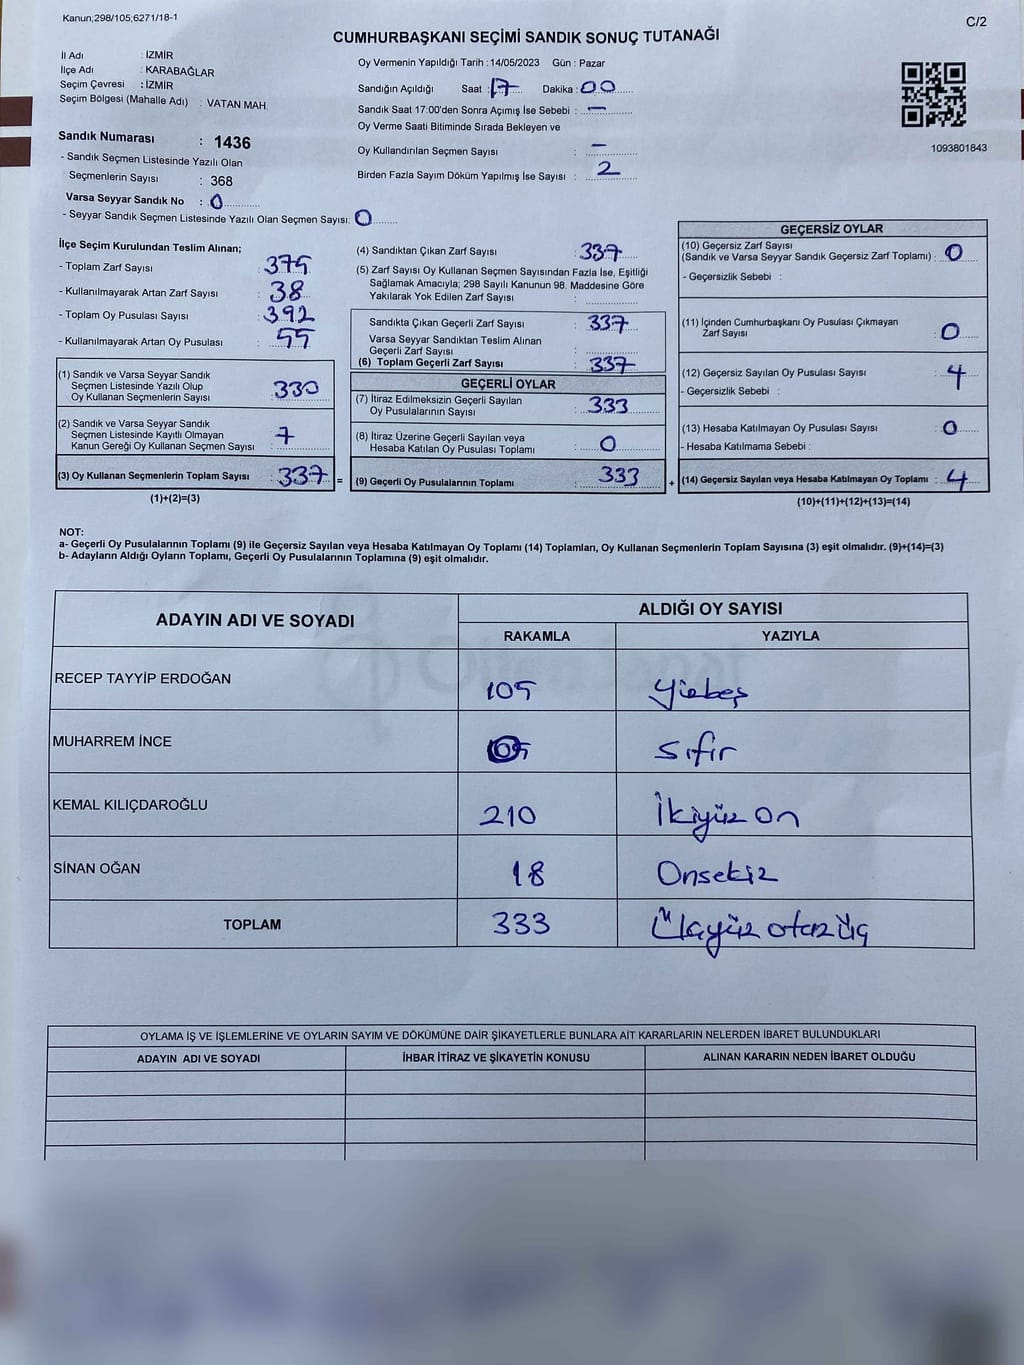 Kanun;298/105;6271/18-1
C/2
CUMHURBAŞKANI SEÇİMİ SANDIK SONUÇ TUTANAĞI
İl Adı : İZMİR
İlçe Adı : KARABAĞLAR
Seçim Çevresi : İZMİR
Seçim Bölgesi (Mahalle Adı) : VATAN MAH.
Oy Vermenin Yapıldığı Tarih : 14/05/2023 Gün : Pazar
Sandığın Açıldığı Saat : 17 Dakika : 00
Sandık Saat 17:00'den Sonra Açımış İse Sebebi : —
Oy Verme Saati Bitiminde Sırada Bekleyen ve
Oy Kullandırılan Seçmen Sayısı : —
Birden Fazla Sayım Döküm Yapılmış İse Sayısı : 2
1093801843
Sandık Numarası : 1436
- Sandık Seçmen Listesinde Yazılı Olan
Seçmenlerin Sayısı : 368
Varsa Seyyar Sandık No : 0
- Seyyar Sandık Seçmen Listesinde Yazılı Olan Seçmen Sayısı: 0
İlçe Seçim Kurulundan Teslim Alınan;
- Toplam Zarf Sayısı : 375
- Kullanılmayarak Artan Zarf Sayısı : 38
- Toplam Oy Pusulası Sayısı : 392
- Kullanılmayarak Artan Oy Pusulası : 55
(1) Sandık ve Varsa Seyyar Sandık
Seçmen Listesinde Yazılı Olup
Oy Kullanan Seçmenlerin Sayısı : 330
(2) Sandık ve Varsa Seyyar Sandık
Seçmen Listesinde Kayıtlı Olmayan
Kanun Gereği Oy Kullanan Seçmen Sayısı : 7
(3) Oy Kullanan Seçmenlerin Toplam Sayısı : 337 =
(1)+(2)=(3)
(4) Sandıktan Çıkan Zarf Sayısı : 337
(5) Zarf Sayısı Oy Kullanan Seçmen Sayısından Fazla İse, Eşitliği
Sağlamak Amacıyla; 298 Sayılı Kanunun 98. Maddesine Göre
Yakılarak Yok Edilen Zarf Sayısı :
Sandıkta Çıkan Geçerli Zarf Sayısı : 337
Varsa Seyyar Sandıktan Teslim Alınan
Geçerli Zarf Sayısı :
(6) Toplam Geçerli Zarf Sayısı : 337
GEÇERLİ OYLAR
(7) İtiraz Edilmeksizin Geçerli Sayılan
Oy Pusulalarının Sayısı : 333
(8) İtiraz Üzerine Geçerli Sayılan veya
Hesaba Katılan Oy Pusulası Toplamı : 0
(9) Geçerli Oy Pusulalarının Toplamı : 333 +
GEÇERSİZ OYLAR
(10) Geçersiz Zarf Sayısı
(Sandık ve Varsa Seyyar Sandık Geçersiz Zarf Toplamı) : 0
- Geçersizlik Sebebi :
(11) İçinden Cumhurbaşkanı Oy Pusulası Çıkmayan
Zarf Sayısı : 0
(12) Geçersiz Sayılan Oy Pusulası Sayısı : 4
- Geçersizlik Sebebi :
(13) Hesaba Katılmayan Oy Pusulası Sayısı : 0
- Hesaba Katılmama Sebebi :
(14) Geçersiz Sayılan veya Hesaba Katılmayan Oy Toplamı : 4
(10)+(11)+(12)+(13)=(14)
NOT:
a- Geçerli Oy Pusulalarının Toplamı (9) ile Geçersiz Sayılan veya Hesaba Katılmayan Oy Toplamı (14) Toplamları, Oy Kullanan Seçmenlerin Toplam Sayısına (3) eşit olmalıdır. (9)+(14)=(3)
b- Adayların Aldığı Oyların Toplamı, Geçerli Oy Pusulalarının Toplamına (9) eşit olmalıdır.
ADAYIN ADI VE SOYADI
ALDIĞI OY SAYISI
RAKAMLA YAZIYLA
RECEP TAYYİP ERDOĞAN 105 yüzbeş
MUHARREM İNCE sıfır
KEMAL KILIÇDAROĞLU 210 İkiyüz on
SİNAN OĞAN 18 Onsekiz
TOPLAM 333 Üçyüz otuz üç
OYLAMA İŞ VE İŞLEMLERİNE VE OYLARIN SAYIM VE DÖKÜMÜNE DAİR ŞİKAYETLERLE BUNLARA AİT KARARLARIN NELERDEN İBARET BULUNDUKLARI
ADAYIN ADI VE SOYADI İHBAR İTİRAZ VE ŞİKAYETİN KONUSU ALINAN KARARIN NEDEN İBARET OLDUĞU